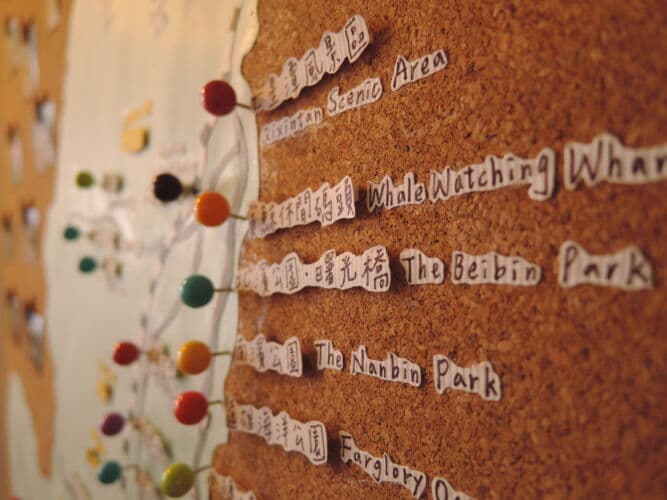 潭風景區
Qixintan Scenic Area
休閒碼頭 Whale Watching Whar
濱公園・曙光橋 The Beibin Park
濱公園 The Nanbin Park
海洋公園 Farglory O